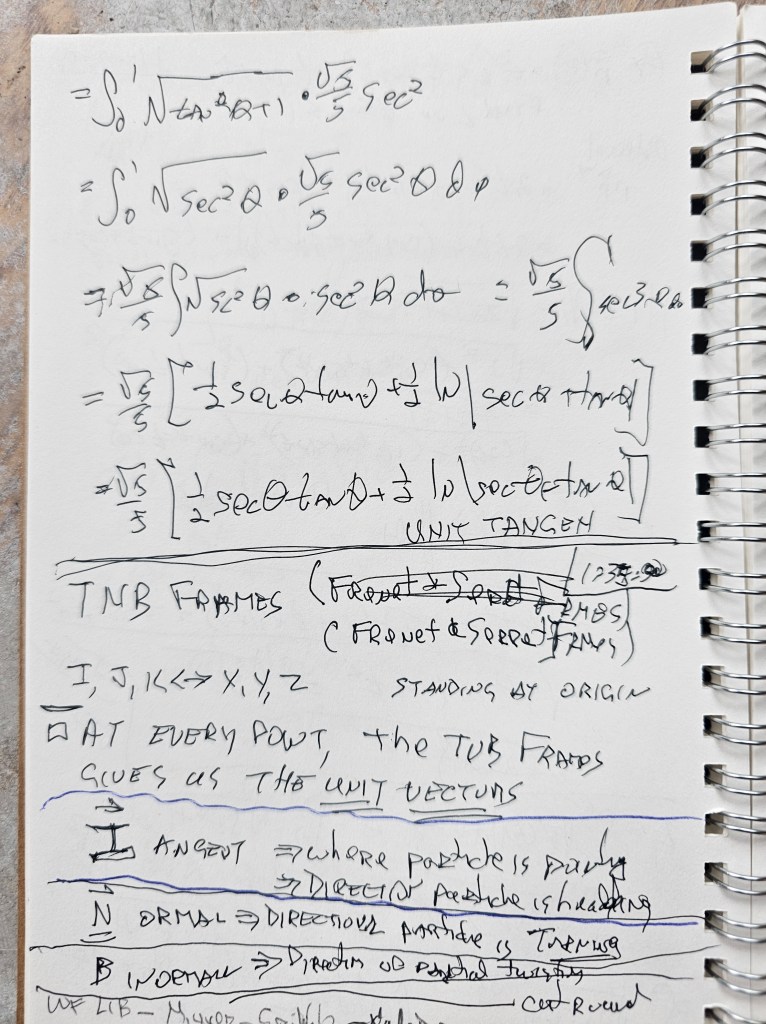 = ∫₀¹ √tan²θ+1 · √5/5 sec²
= ∫₀¹ √sec²θ · √5/5 sec²θ dφ
= √5/5 ∫ √sec²θ · sec²θ dθ = √5/5 ∫ sec³θ dθ
= √5/5 [ 1/2 secθ tanθ + 1/2 ln | secθ + tanθ| ]
= √5/5 [ 1/2 secθ tanθ + 1/2 ln |secθ + tanθ| ]
UNIT TANGEN
TNB FRAMES
(FRENET & SERRET FRMES)
I, J, K <-> X, Y, Z STANDING AT ORIGIN
□ AT EVERY POINT, the TNB FRAMES
GIVES US THE UNIT VECTORS
T ANGENT ⇒ where particle is
⇒ DIRECTION particle is heading
N ORMAL ⇒ DIRECTION particle is TURNING
B INORMAL ⇒ Direction twisting